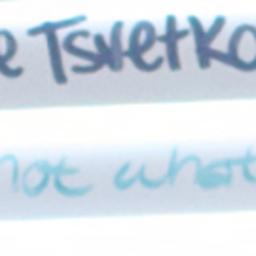 e Tsvetko
not what